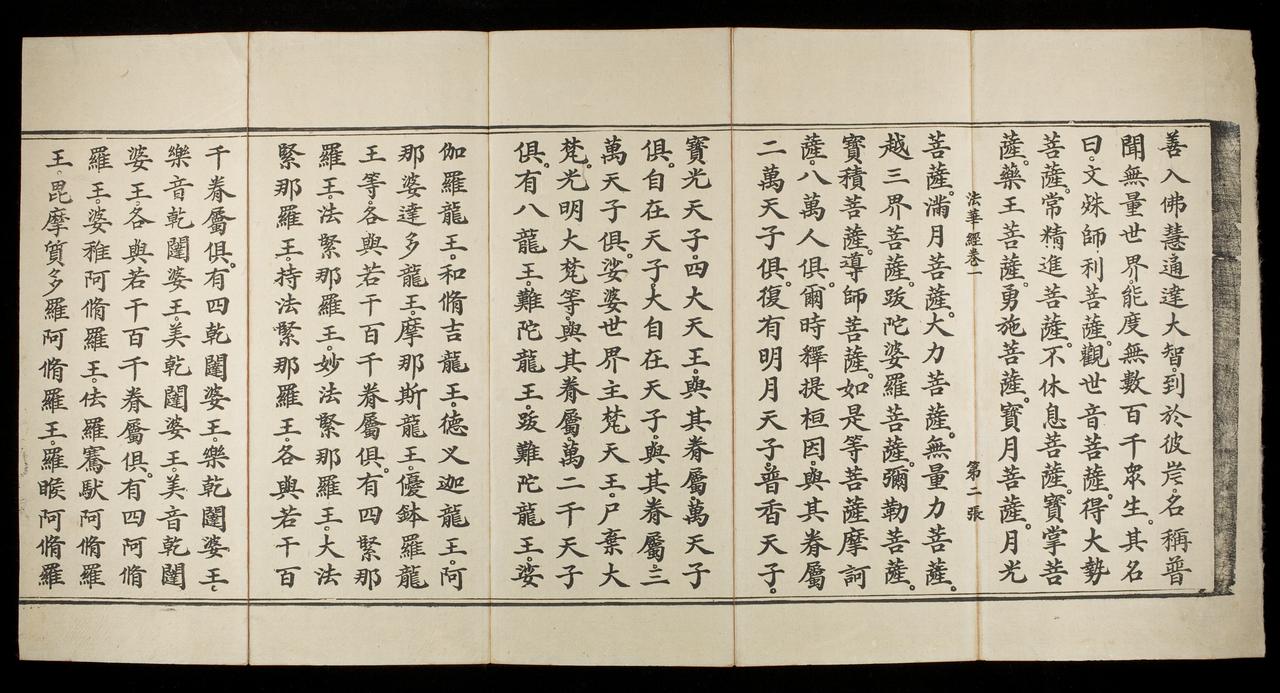 善入佛慧通達大智。到於彼岸。名稱普
聞無量世界。能度無數百千眾生。其名
曰。文殊師利菩薩。觀世音菩薩。得大勢
菩薩。常精進菩薩。不休息菩薩。寶掌菩
薩。藥王菩薩。勇施菩薩。寶月菩薩。月光
法華經卷一 第二張
菩薩。滿月菩薩。大力菩薩。無量力菩薩。
越三界菩薩。跋陀婆羅菩薩。彌勒菩薩。
寶積菩薩。導師菩薩。如是等菩薩摩訶
薩。八萬人俱。爾時釋提桓因。與其眷屬
二萬天子俱。復有明月天子。普香天子。
寶光天子。四大天王。與其眷屬。萬天子
俱。自在天子。大自在天子。與其眷屬。三
萬天子俱。娑婆世界主梵天王。尸棄大
梵。光明大梵等。與其眷屬。萬二千天子
俱。有八龍王。難陀龍王。跋難陀龍王。娑
伽羅龍王。和脩吉龍王。德叉迦龍王。阿
那婆達多龍王。摩那斯龍王。優鉢羅龍
王等。各與若干百千眷屬俱。有四緊那
羅王。法緊那羅王。妙法緊那羅王。大法
緊那羅王。持法緊那羅王。各與若干百
千眷屬俱。有四乾闥婆王。樂乾闥婆王。
樂音乾闥婆王。美乾闥婆王。美音乾闥
婆王。各與若干百千眷屬俱。有四阿脩
羅王。婆稚阿脩羅王。佉羅騫馱阿脩羅
王。毘摩質多羅阿脩羅王。羅睺阿脩羅